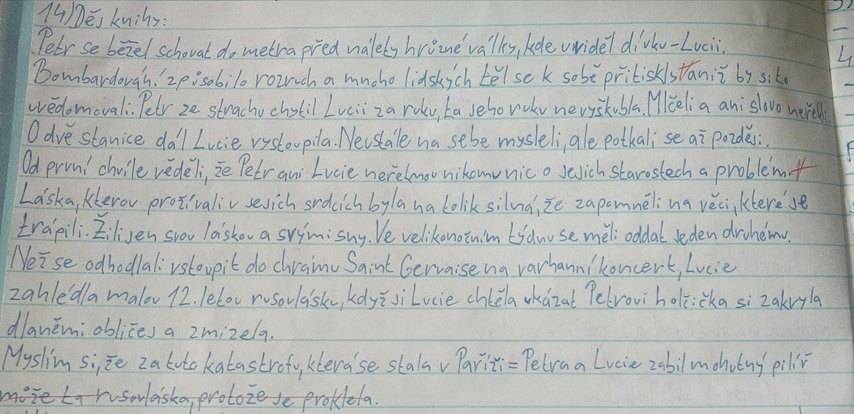 14) Děj knihy:
Petr se běžel schovat do metra před nálety hrůzné války, kde uviděl dívku-Lucii.
Bombardování způsobilo rozruch a mnoho lidských těl se k sobě přitiskly aniž by si to
uvědomovali. Petr ze strachu chytil Lucii za ruku, ta jeho ruku nevyškubla. Mlčeli a ani slovo neřekli.
O dvě stanice dál Lucie vystoupila. Neustále na sebe mysleli, ale potkali se až později.
Od první chvíle věděli, že Petr ani Lucie neřeknou nikomu nic o jejich starostech a problém
Láska, kterou prožívali v jejich srdcích byla na tolik silná, že zapomněli na věci, které je
trápili. Žili jen svou láskou a svými sny. Ve velikonočním týdnu se měli oddat jeden druhému.
Než se odhodlali vstoupit do chrámu Saint Gervaise na varhanní koncert, Lucie
zahlédla malou 12. letou rusovlásku, když si Lucie chtěla ukázat Petrovi holčička si zakryla
dlaněmi obličej a zmizela.
Myslím si, že za tuto katastrofu, která se stala v Paříži = Petra a Lucie zabil mohutný pilíř
může ta rusovláska, protože je prokleta.